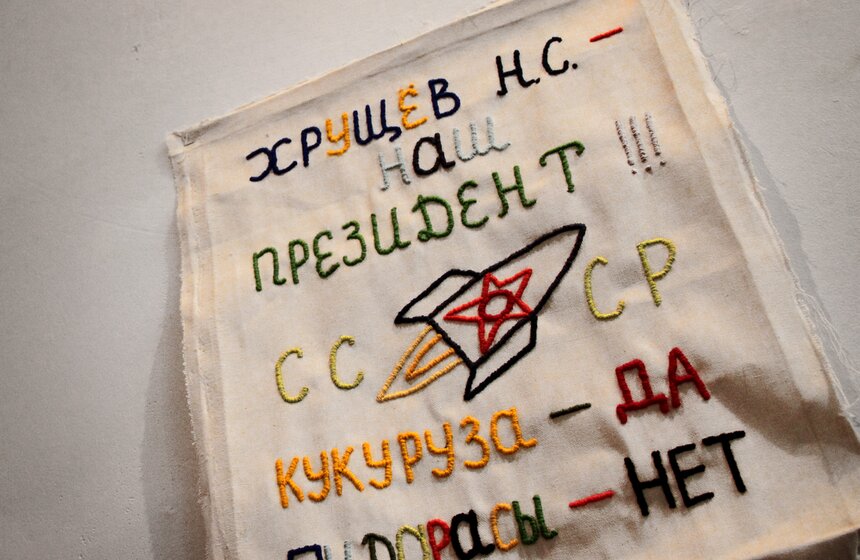 ХРУЩЕВ Н.С. –
НАШ
ПРЕЗИДЕНТ !!!
СС СР
КУКУРУЗА – ДА
ПИДОРАСЫ – НЕТ